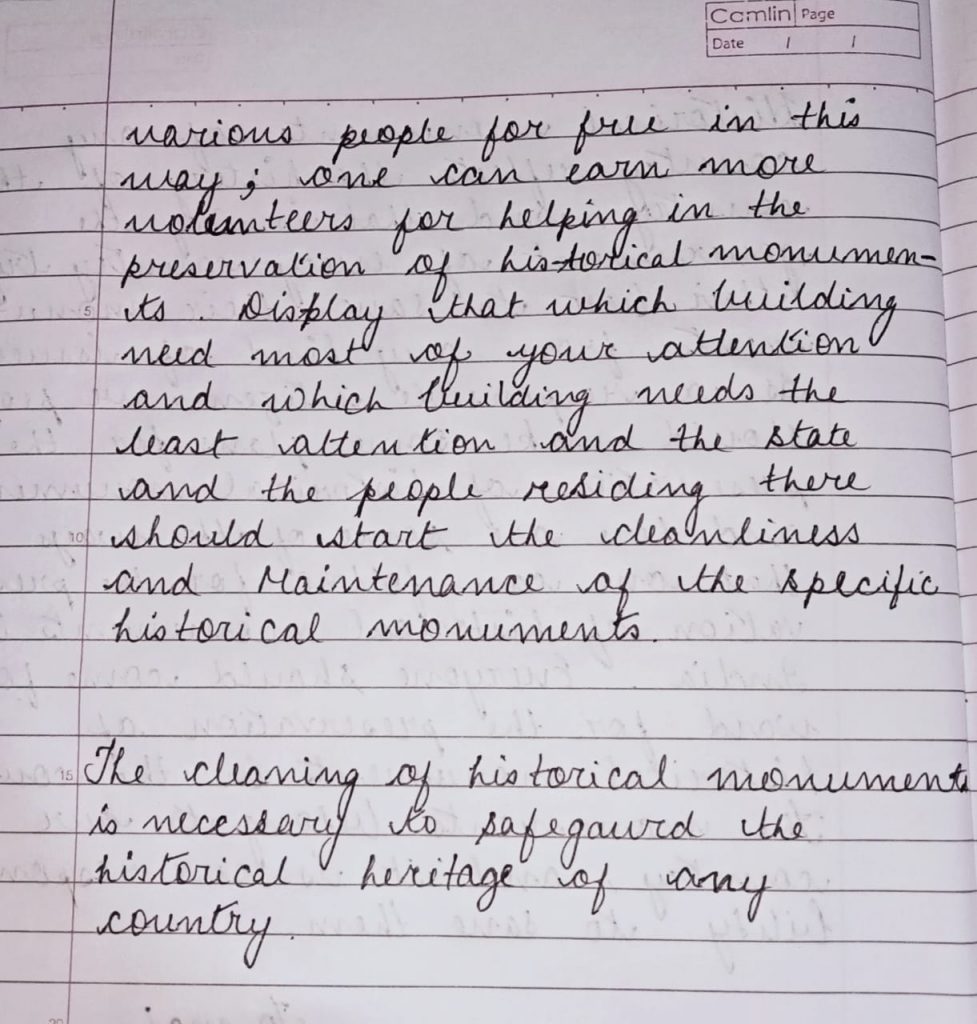 Camlin Page
Date / /
various people for free in this
way ; one can earn more
volunteers for helping in the
preservation of historical monumen-
5 ts . Display that which building
need most of your attention
and which building needs the
least attention and the state
and the people residing there
10 should start the cleanliness
and Maintenance of the specific
historical monuments.
15 The cleaning of historical monuments
is necessary to safegaurd the
historical heritage of any
country.
20